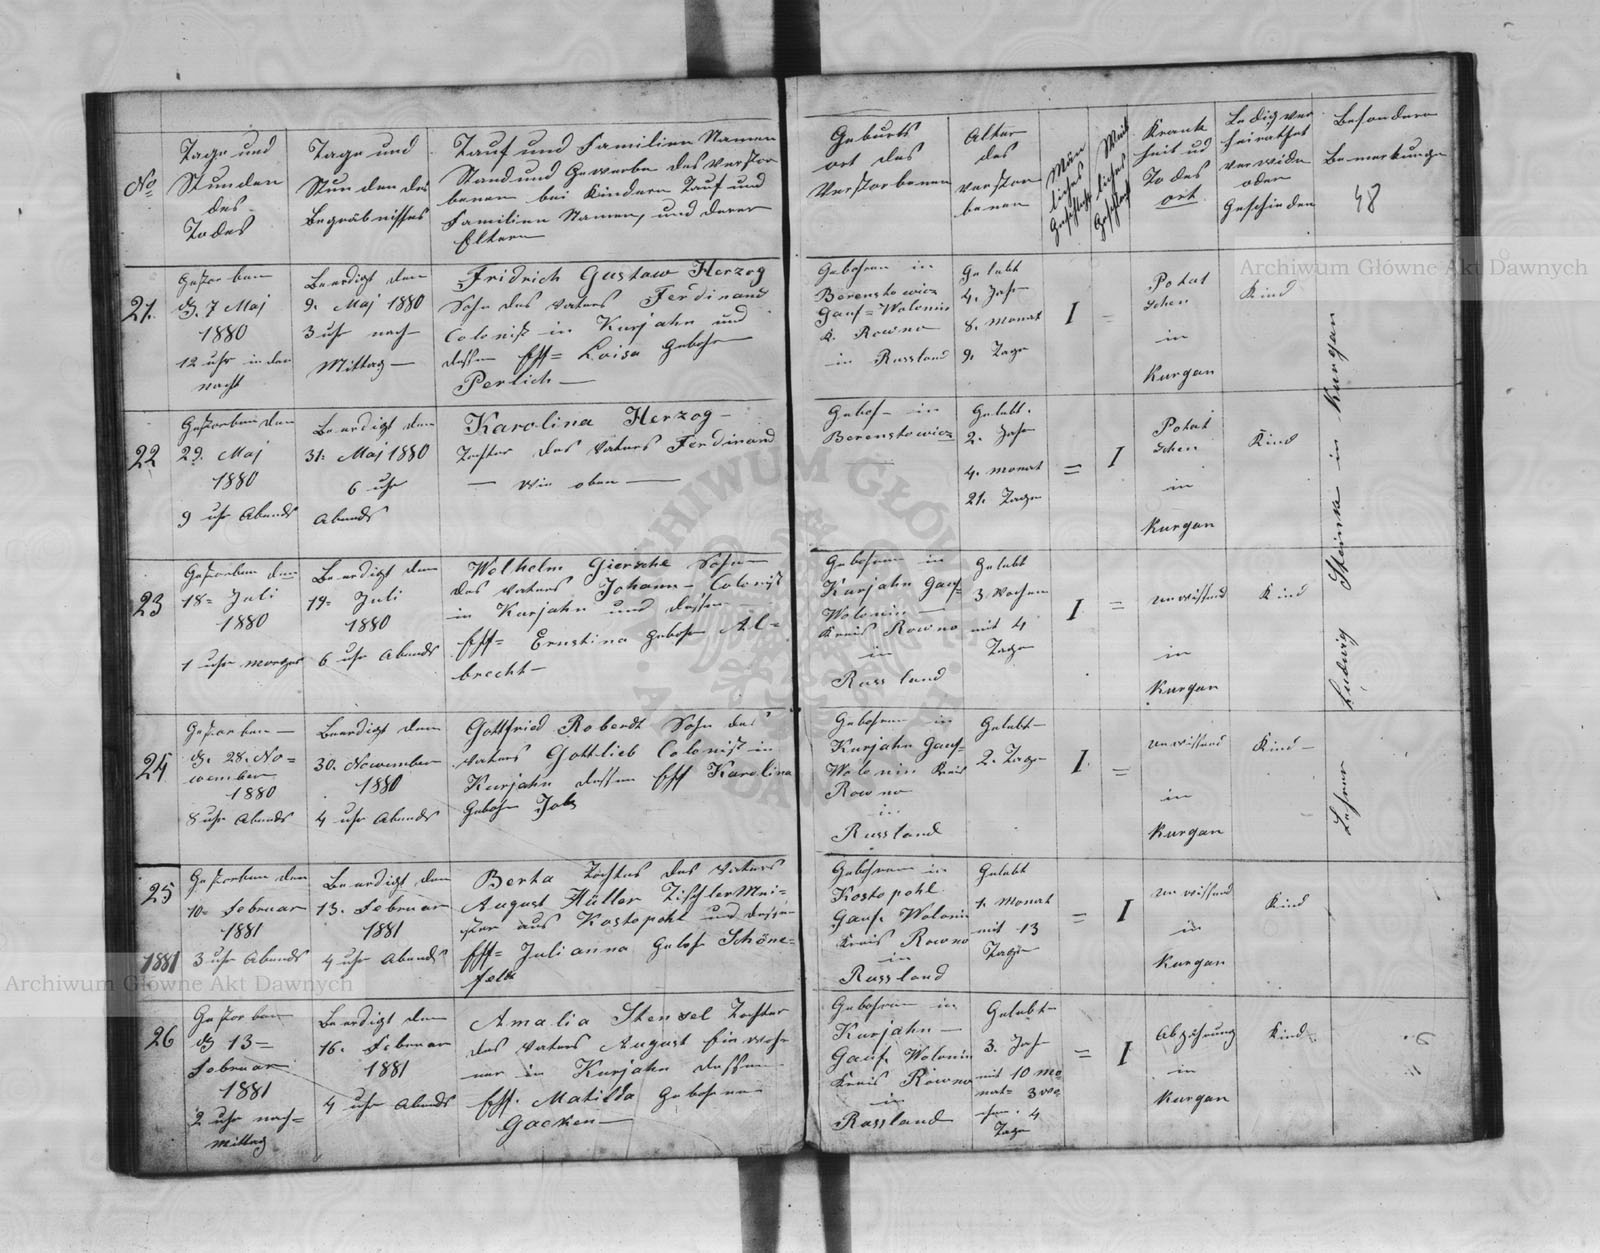 No
Tage und
Stunden
des
Todes
Tage und
Stunden des
Begräbnisses
Tauf und Familien Namen
Stand und Gewerbe des Verstor
benen bei Kindern Tauf und
Familien Namen, und deren
Eltern
Geburts
ort des
Verstorbenen
Alter
des
verstor
benen
Män
liches
Geschlecht
Weib
liches
Geschlecht
Krank
heit ud
Todes
ort
Ledig ver
heirathet
verwidw
oder
Geschieden
Besondere
Bemerkunge
48
21.
Gestorben
d. 7 Maj
1880
12 uhr in der
nacht
Beerdigt den
9. Maj 1880
3 uhr nach
Mittag
Fridrich Gustaw Herzog
Sohn des Vaters Ferdinand
Colonist in Kurjahn und
dessen Eff= Loisa Gebohr
Perlich
Gebohren in
Berenstowicz
Gouf= Wolonin
K. Rowno
in Russland
Gelebt
4. Jahr
8. monat
9. Tage
I
=
Potat
schen
in
Kurgan
Kind
22
Gestorben den
29. Maj
1880
9 uhr Abends
Beerdigt den
31. Maj 1880
6 uhr
Abends
Karolina Herzog
Tochter des Vaters Ferdinand
— wie oben —
Geboh- in
Berenstowicz
Gelebt.
2. Jahr
4. monat
21. Tage
=
I
Potat
schen
in
Kurgan
Kind
23
Gestorben den
18= Juli
1880
1 uhr morges
Beerdigt den
19= Juli
1880
6 uhr Abends
Welhelm Giersche Sohn
des Vaters Johann Colonist
in Kurjahn und dessen
Eff= Ernstina Gebohr Al=
brecht
Gebohren in
Kurjahn Gouf=
Wolonin
Kreis Rowno
in
Russland
Gelebt
3 Wochen
mit 4
Tage
I
=
unwissend
in
Kurgan
Kind
24
Gestorben
d. 28. No=
wember
1880
8 uhr Abends
Beerdigt den
30. Nowember
1880
4 uhr Abends
Gottfried Roberdt Sohn des
Vaters Gottlieb Colonist in
Kurjahn dessen Eff Karolina
Gebohr Jols
Gebohren in
Kurjahn Gouf=
Wolonin Kreis
Rowno
in
Russland
Gelebt
2. Tage
I
=
unwissend
in
Kurgan
Kind
25
1881
Gestorben den
10= Februar
1881
3 uhr Abends
Beerdigt den
13. Februar
1881
4 uhr Abends
Berta Tochter des Vaters
August Hüller Tischler Mei=
ster aus Kostopohl und dessen
Eff= Julianna Gebohr Schöne=
felt
Gebohren in
Kostopohl
Gouf. Wolonin
Kreis Rowno
in
Russland
Gelebt
1. Monat
mit 13
Tage
=
I
unwissend
in
Kurgan
Kind
26
Gestorben
d 13=
Februar
1881
2 uhr nach=
mittag
Beerdigt den
16. Februar
1881
4 uhr Abends
Amalia Stensel Tochter
des Vaters August Einwoh
ner in Kurjahn dessen
Eff. Matilda Gebohren
Gacken
Gebohren in
Kurjahn
Gouf. Wolonin
Kreis Rowno
in
Russland
Gelebt
3. Jahr
mit 10 mo
nat= 3 wo
chen. 4
Tage
=
I
Abzehrung
in
Kurgan
Kind
Lehrer Ludwig Steinke in Kurgan
Archiwum Główne Akt Dawnych
Archiwum Główne Akt Dawnych